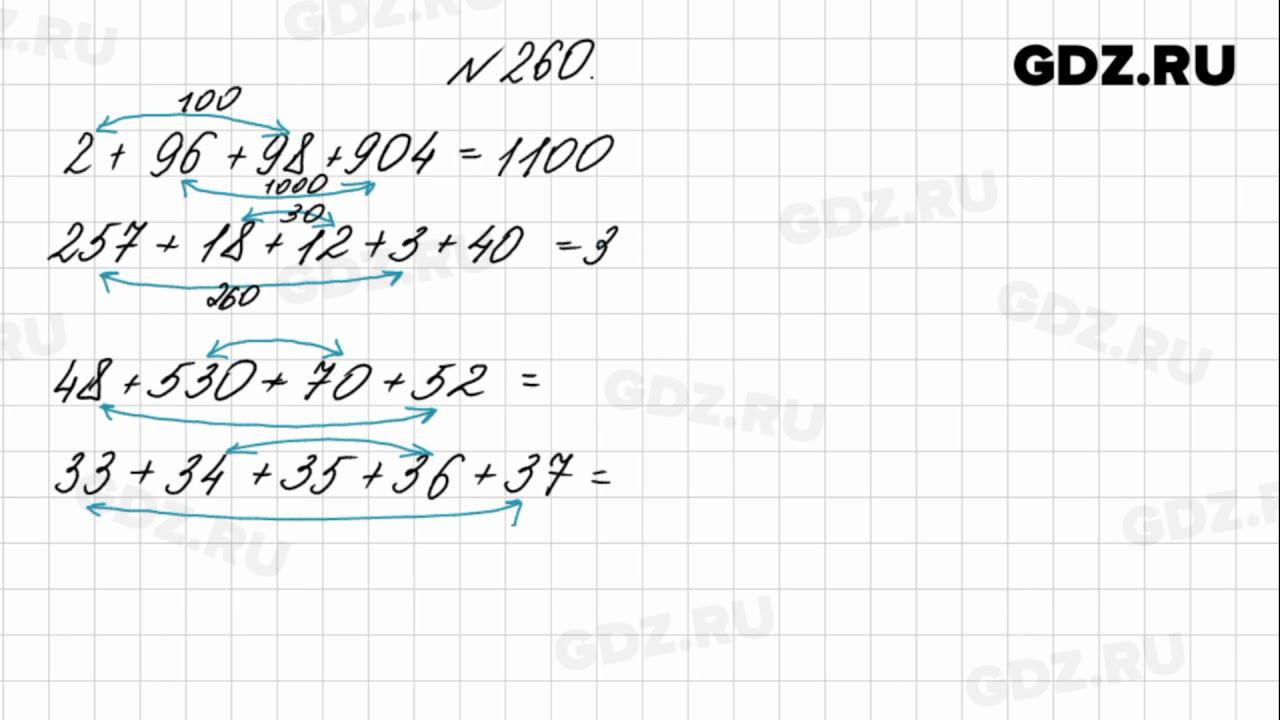 № 260.
GDZ.RU
100
2 + 96 + 98 + 904 = 1100
1000
30
257 + 18 + 12 + 3 + 40 = 3
260
48 + 530 + 70 + 52 =
33 + 34 + 35 + 36 + 37 =
GDZ.RU
GDZ.RU
GDZ.RU
GDZ.RU
GDZ.RU
GDZ.RU
GDZ.RU
GDZ.RU
GDZ.RU
GDZ.RU